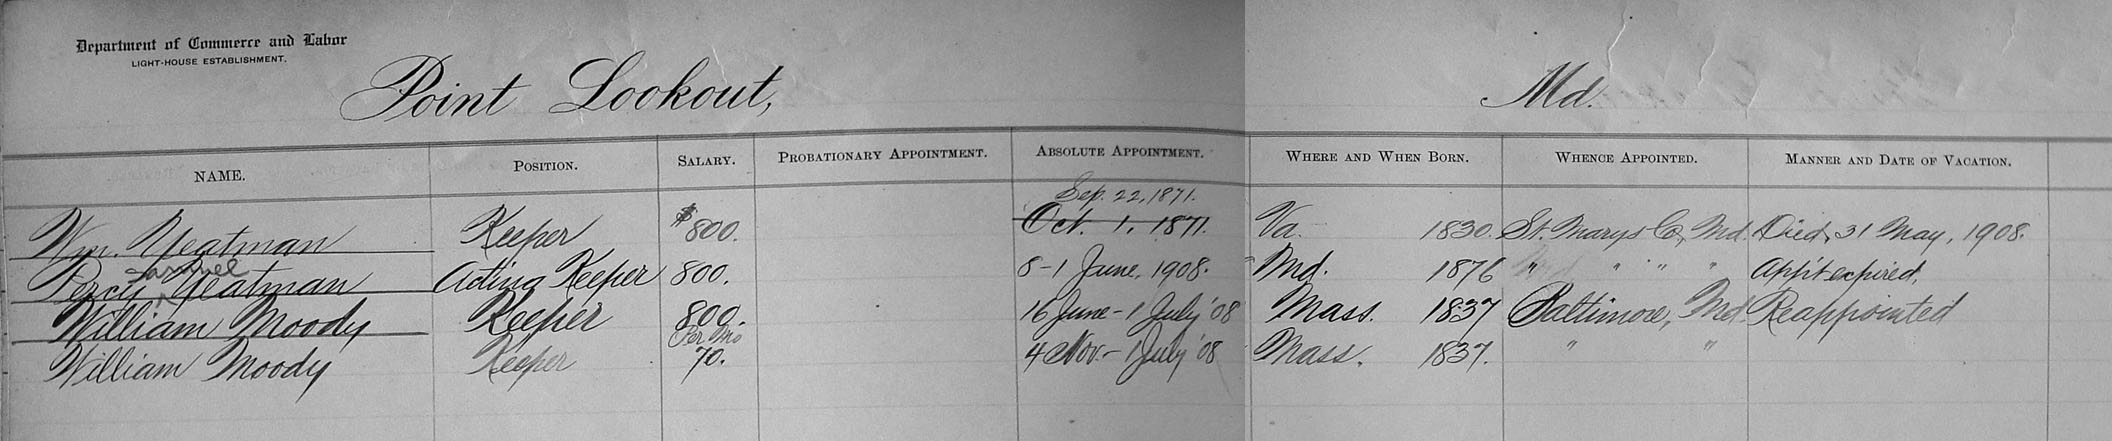 Department of Commerce and Labor
LIGHT-HOUSE ESTABLISHMENT.
Point Lookout, Md.
NAME. POSITION. SALARY. PROBATIONARY APPOINTMENT. ABSOLUTE APPOINTMENT. WHERE AND WHEN BORN. WHENCE APPOINTED. MANNER AND DATE OF VACATION.
Sep. 22, 1871.
Wm. Yeatman Keeper $800. Oct. 1, 1871. Va. 1830. St. Marys Co., Md. Died, 31 May, 1908.
Samuel
Percy Yeatman Acting Keeper 800. 8-1 June, 1908. Md. 1876 " " " " App't expired.
William Moody Keeper 800. 16 June - 1 July '08 Mass. 1837 Baltimore, Md. Reappointed
Per Mo
William Moody Keeper 70. 4 Nov. - 1 July '08 Mass. 1837. " "